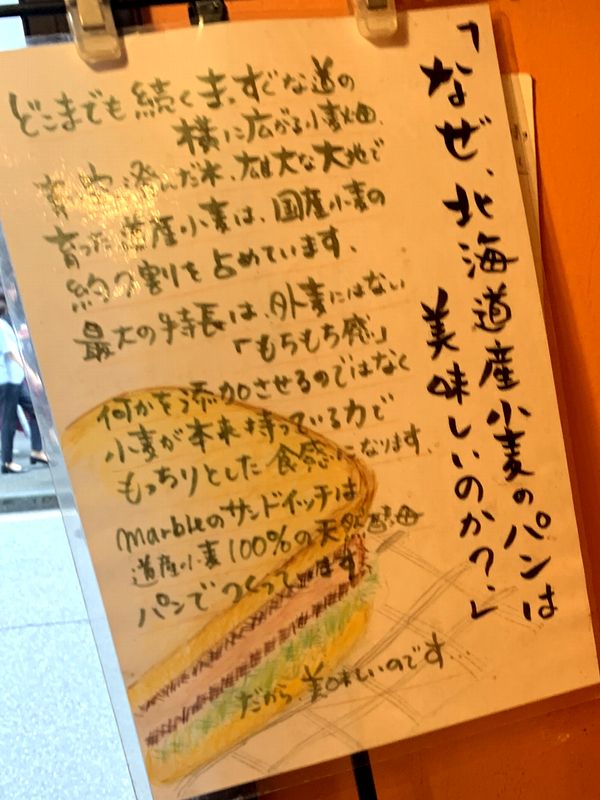 「なぜ、北海道産小麦のパンは
美味しいのか?」
どこまでも続くまっすぐな道の
横に広がる小麦畑、
青い空、澄んだ水、雄大な大地で
育った道産小麦は、国産小麦の
約7割を占めています。
最大の特長は、外麦にはない
「もちもち感」
何かを添加させるのではなく
小麦が本来持っている力で
もっちりとした食感になります。
marbleのサンドイッチは
道産小麦100%の天然酵母
パンでつくってます
だから、美味しいのです…